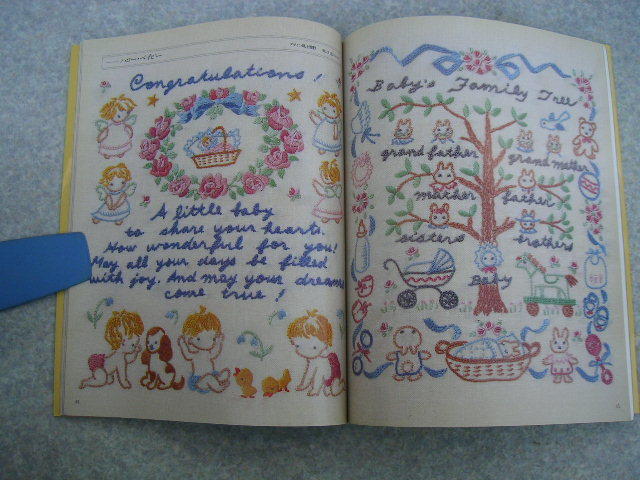 ハロー・ベイビー
Congratulations!
A little baby
to share your hearts.
How wonderful for you!
May all your days be filled
with joy. And may your dreams
come true!
Baby's Family Tree
grand father
grand mother
mother
father
sisters
brothers
Baby